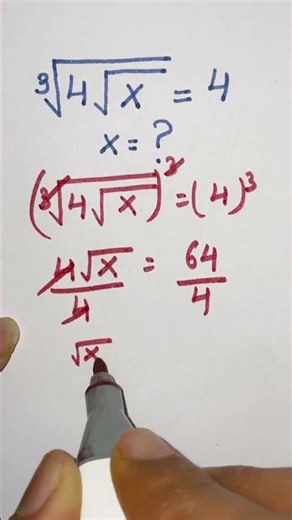 ∛(4√x) = 4
x = ?
(∛(4√x))³ = (4)³
4√x/4 = 64/4
√x